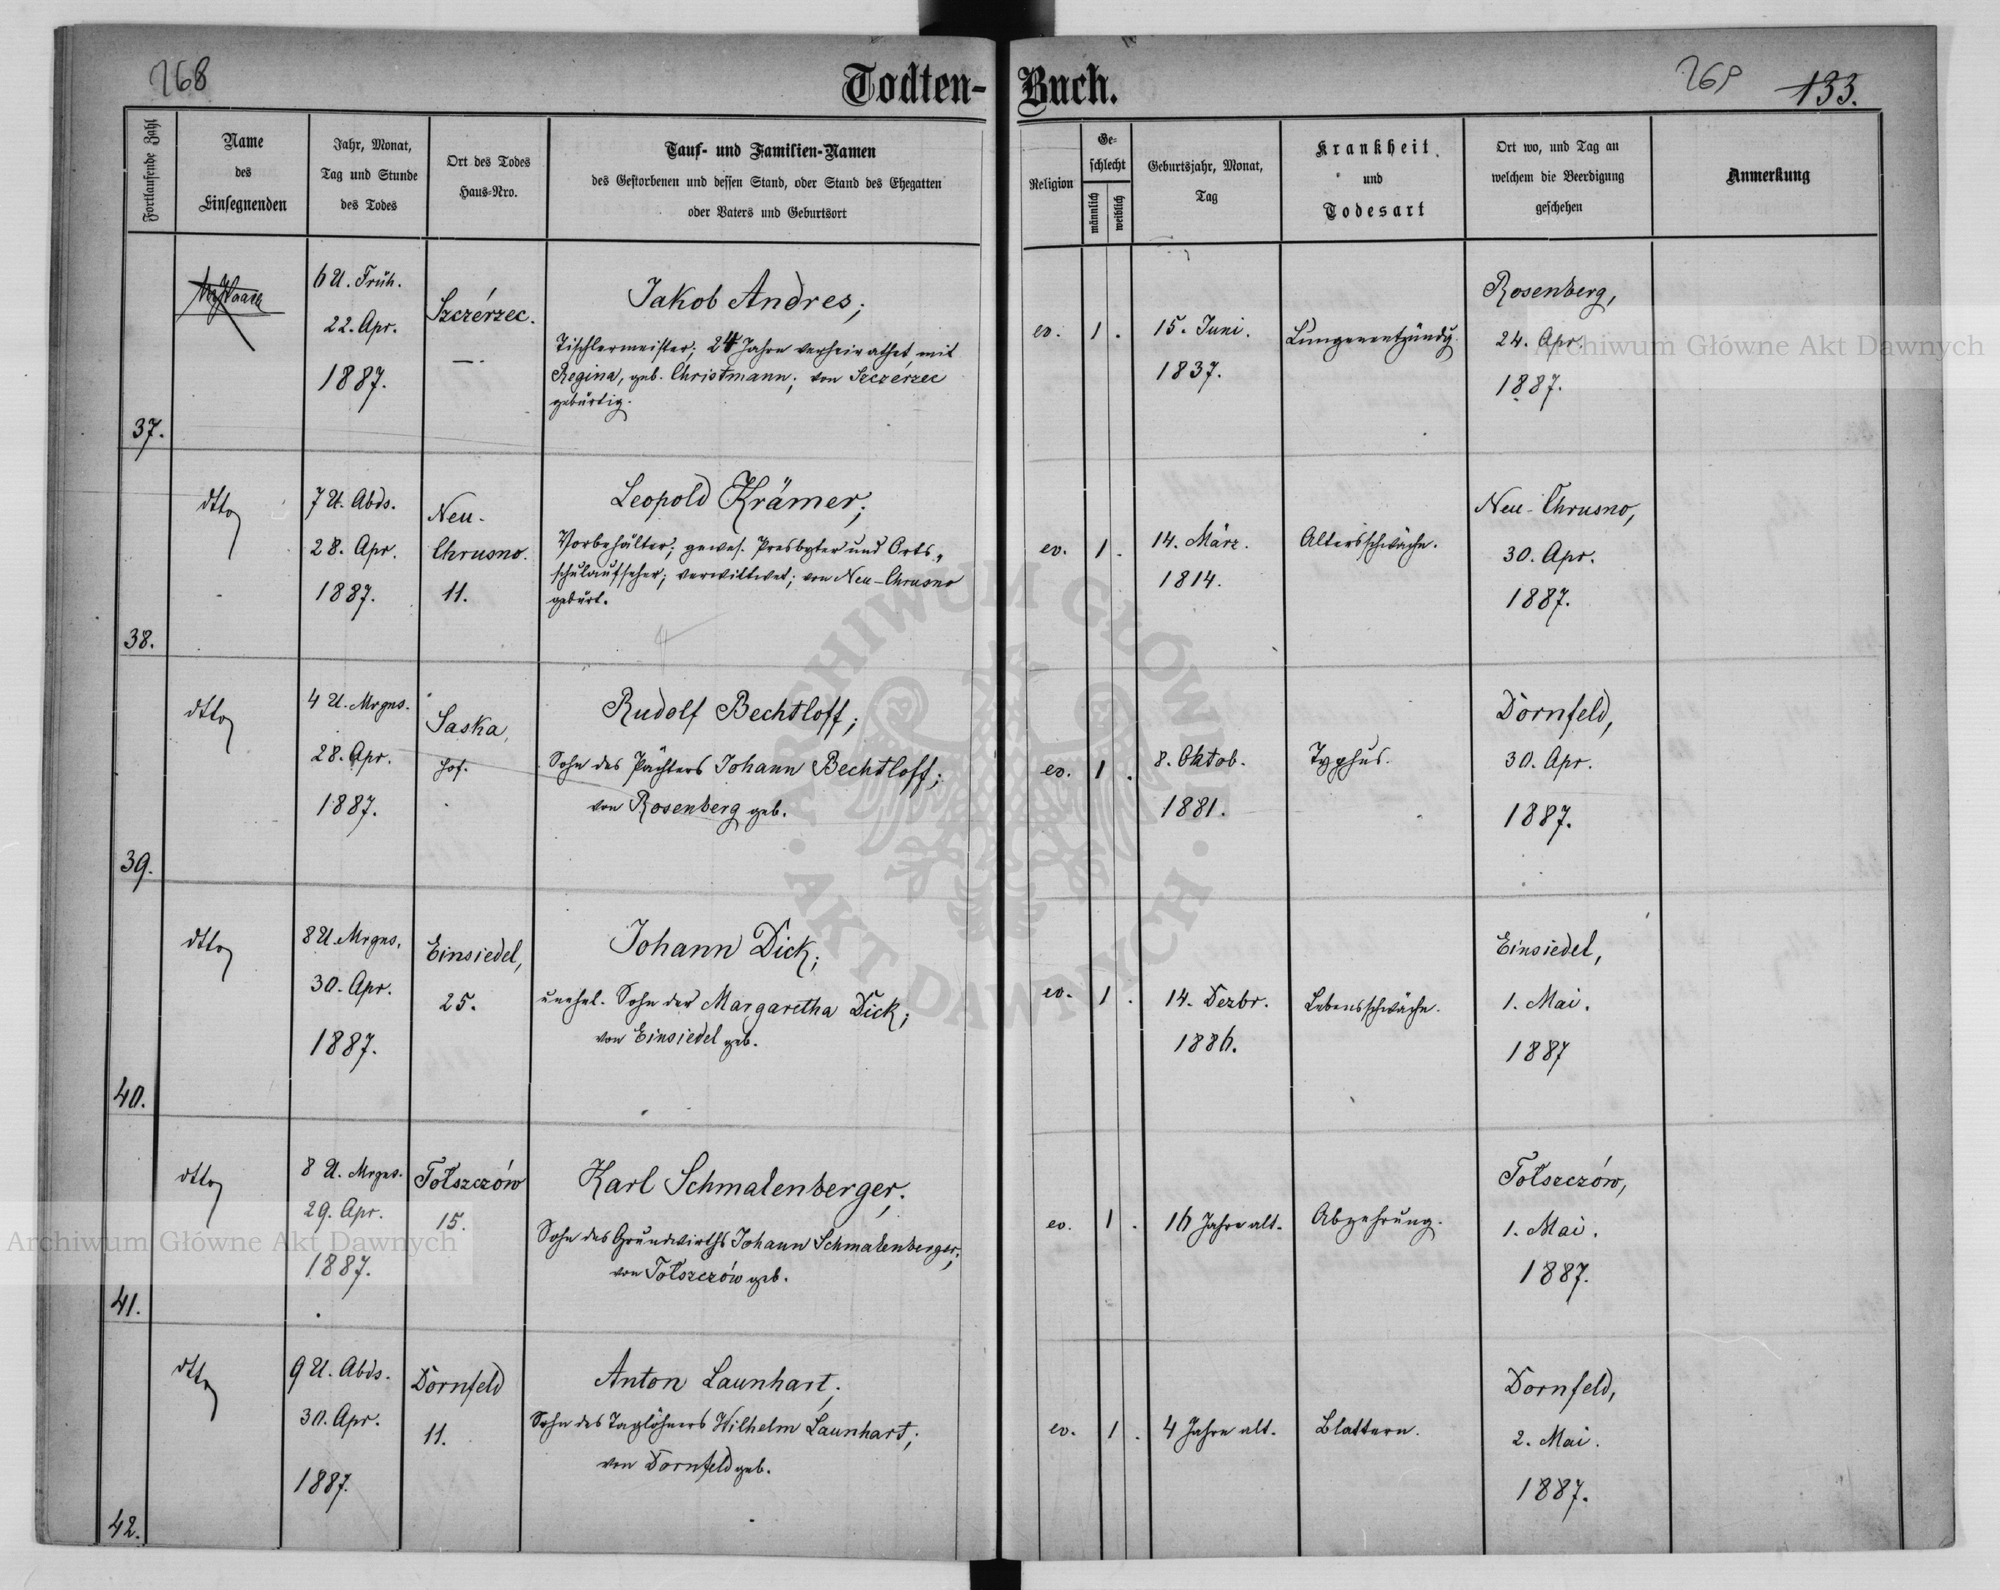 268
Todten-
Fortlaufende Zahl
Name
des
Einsegnenden
Jahr, Monat,
Tag und Stunde
des Todes
Ort des Todes
Haus-Nro.
Tauf- und Familien-Namen
des Gestorbenen und dessen Stand, oder Stand des Ehegatten
oder Vaters und Geburtsort
37.
6 U. Früh.
22. Apr.
1887.
Szczérzec.
—.
Jakob Andres;
Tischlermeister; 24 Jahre verheirathet mit
Regina, geb. Christmann; von Szczérzec
gebürtig.
38.
dtto
7 U. Abds.
28. Apr.
1887.
Neu-
Chrusno.
11.
Leopold Krämer;
Vorbehälter; gewes. Presbyter und Orts-
schulaufseher; verwittwet; von Neu-Chrusno
gebürt.
39.
dtto
4 U. Mrgns.
28. Apr.
1887.
Saska,
Hof.
Rudolf Bechtloff;
Sohn des Pächters Johann Bechtloff;
von Rosenberg geb.
40.
dtto
8 U. Mrgns.
30. Apr.
1887.
Einsiedel,
25.
Johann Dick;
unehel. Sohn der Margaretha Dick;
von Einsiedel geb.
41.
dtto
8 U. Mrgns.
29. Apr.
1887.
Tołszczów
15.
Karl Schmalenberger;
Sohn des Grundwirths Johann Schmalenberger;
von Tołszczów geb.
42.
dtto
9 U. Abds.
30. Apr.
1887.
Dornfeld
11.
Anton Launhart;
Sohn des Taglöhners Wilhelm Launhart;
von Dornfeld geb.
Buch.
269
133.
Religion
Ge-
schlecht
männlich
weiblich
Geburtsjahr, Monat,
Tag
Krankheit
und
Todesart
Ort wo, und Tag an
welchem die Beerdigung
geschehen
Anmerkung
ev.
1
.
15. Juni.
1837.
Lungenentzündg.
Rosenberg,
24. Apr.
1887.
ev.
1
.
14. März.
1814.
Altersschwäche.
Neu-Chrusno,
30. Apr.
1887.
ev.
1
.
8. Oktob.
1881.
Typhus.
Dornfeld,
30. Apr.
1887.
ev.
1
.
14. Dezbr.
1886.
Lebensschwäche.
Einsiedel,
1. Mai.
1887
ev.
1
.
16 Jahre alt.
Abzehrung.
Tołszczów,
1. Mai.
1887.
ev.
1
.
4 Jahre alt.
Blattern.
Dornfeld,
2. Mai.
1887.
Archiwum Główne Akt Dawnych
ARCHIWUM GŁÓWNE
AKT DAWNYCH
Archiwum Główne Akt Dawnych